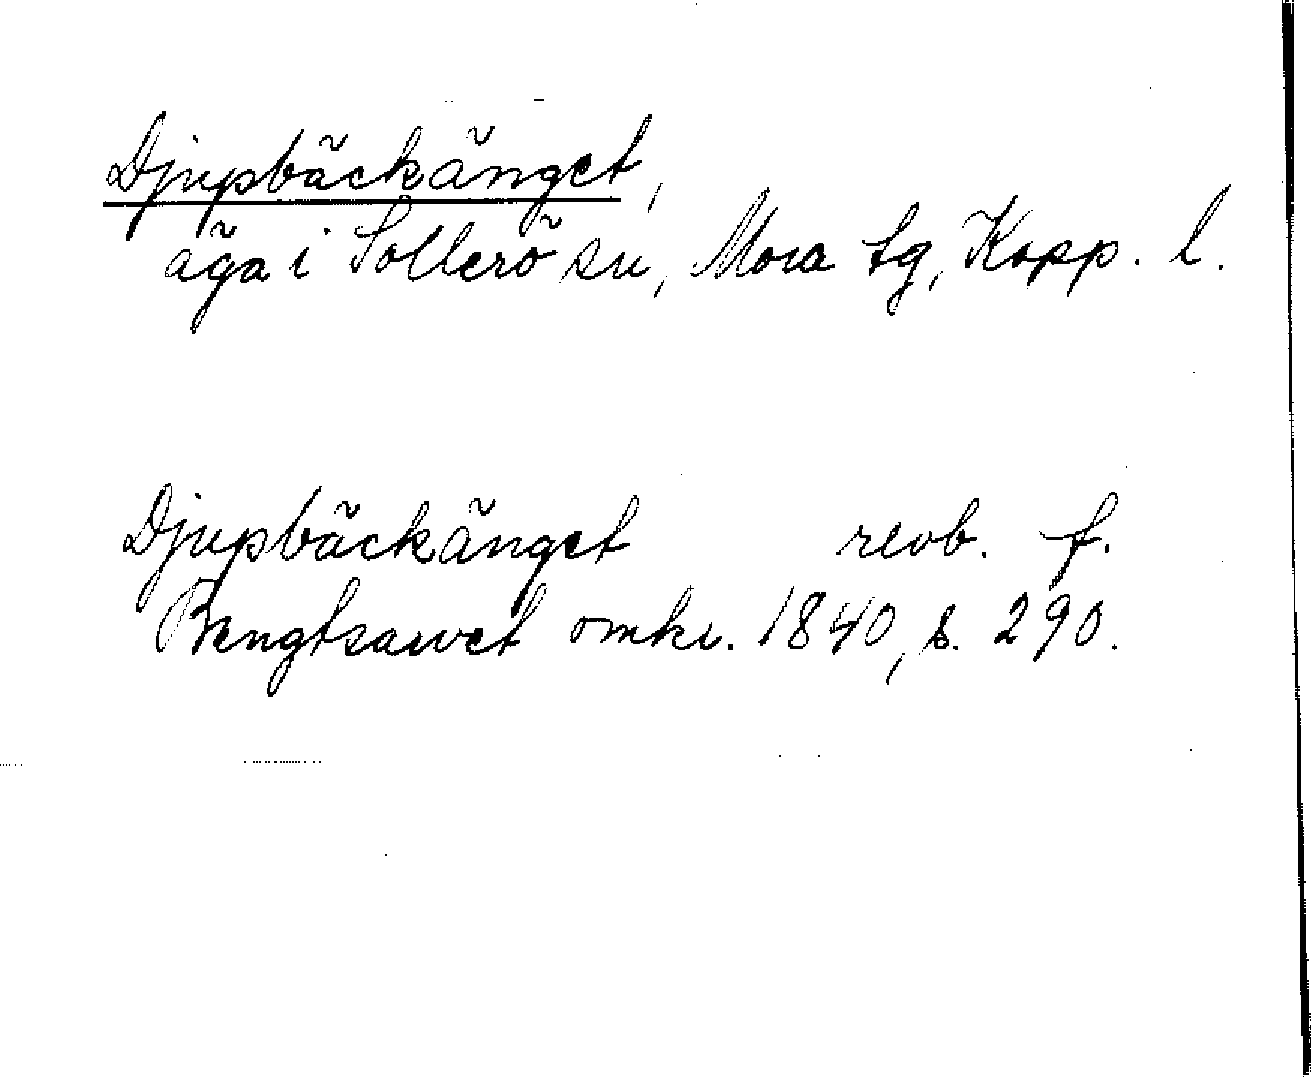 Djupbäckänget,
äga i Sollerö sn, Mora tg, Kopp. l.
Djupbäckänget revb. f.
Bengtsarvet omkr. 1840, s. 290.